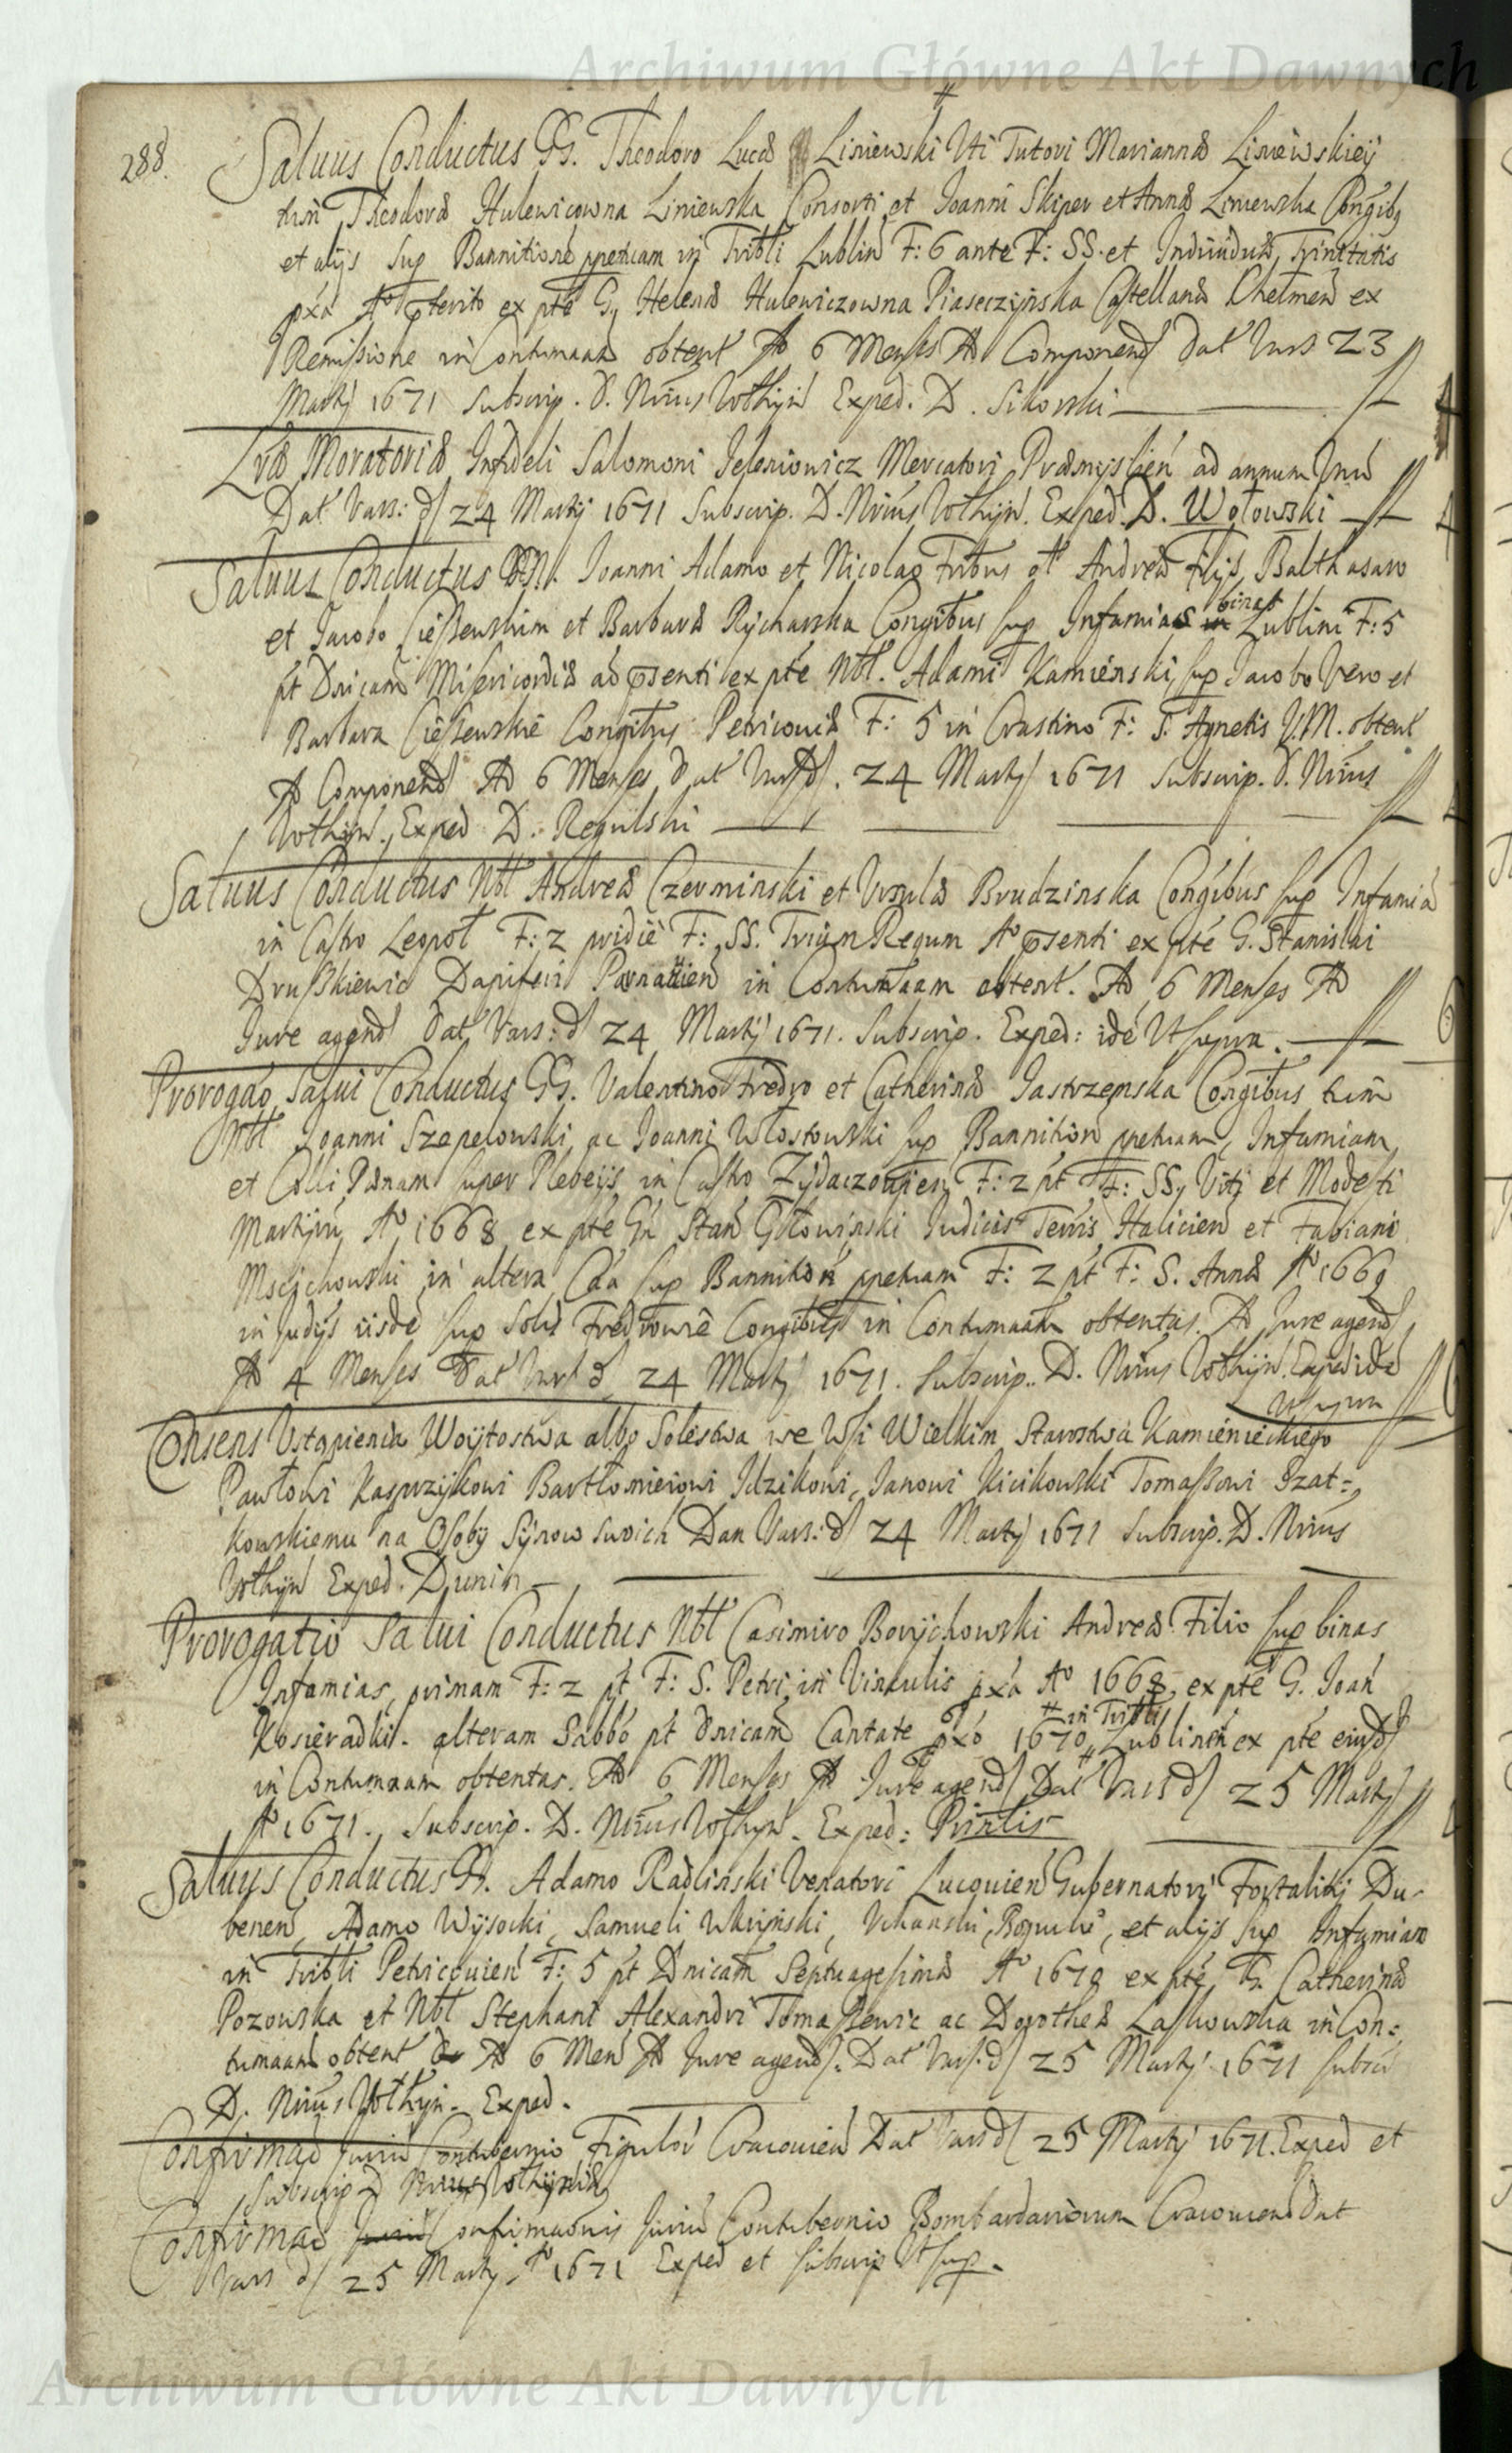 Archiwum Główne Akt Dawnych
288.
Saluus Conductus GG. Theodoro Lucæ Liniewski Uti Tutori Mariannæ Liniewskiey
tum Theodoræ Hulewicowna Liniewska Consorti et Joanni Skiper et Annæ Liniewska Congibq
et alijs sup Bannitione ppetuam in Tribli Lublin F: 6 ante F: SS. et Indiuiduæ Trinitatis
pxa Ao pterito ex pte G. Helenæ Hulewiczowna Piaseczyńska Castellanæ Chelmen ex
Remissione in Contumaam obtent Ad 6 Menses Ad Componend Dat Vars 23
Martij 1671 Subscrip. D. Nrius Vothijn Exped. D. Sikorski
Lræ Moratoriæ Infideli Salomoni Jeleniowicz Mercatori Præmyslien ad annum Unu
Dat Vars: d 24 Martij 1671 Subscrip. D. Nrius Vothijn. Exped. D. Wołowski
Saluus Conductus NN. Joanni Adamo et Nicolao Fribus ol Andreæ Filijs, Balthasaro
et Jacobo Cieszewskim et Barbaræ Rycharska Congibus sup Infamias binas Lublini F: 5
pt Dnicam Misericordiæ ao psenti ex pte Nbl. Adami Kamienski, sup Jacobo Vero et
Barbara Cieszewskie Congibus Petricouiæ F: 5 in Crastino F: S. Agnetis V.M. obtent
Ad Componend Ad 6 Menses Dat Vars d. 24 Martij 1671 Subscrip. D. Nrius
Vothijn. Exped D. Regulski
Saluus Conductus Nbl Andreæ Czerminski et Ursulæ Brudzinska Congibus sup Infamia
in Castro Leopol F: 2 pridie F: SS. Trium Regum Ao psenti ex pte G. Stanislai
Druszkiewic Dapiferi Parnauien in Contumaam obtent. Ad 6 Menses Ad
Jure agend Dat Vars: d 24 Martij 1671. Subscrip. Exped: ide Ut supra.
Prorogao Salui Conductus GG. Valentino Fredro et Catherinæ Jastrzemska Congibus tum
Nbl Joanni Szepelowski ac Joanni Włostowski sup Bannition ppetuam, Infamiam,
et Colli Pænam super Plebeijs in Castro Zydaczouien F: 2 pt F: SS. Viti et Modesti
Martyru Ao 1668 ex pte Gn Stan Gołowiński Judicis Terris Halicien et Fabiani
Mscichowski in altera Caa sup Bannition ppetuam F: 2 pt F: S. Annæ Ao 1669
in Judijs iisde sup Solis Fredrowie Congibus in Contumaam obtentas. Ad Jure agend
Ad 4 Menses Dat Vars d 24 Martij 1671. Subscrip. D. Nrius Vothijn. Exped ide
Ut supra
Consens Ustąpienia Woytostwa albo Solestwa we Wsi Wielkim Starostwa Kamienieckiego
Pawłowi Kasprzykowi Bartłomieiowi Idzikowi, Janowi Kicikowski Tomaszowi Szat-
kowskiemu na Osoby Synow swoich Dan Vars: d 24 Martij 1671 Subscrip. D. Nrius
Vothijn Exped. Dunin
Prorogatio Salui Conductus Nbl Casimiro Borychowski Andreæ Filio sup binas
Infamias, primam F: 2 pt F: S. Petri in Vinculis pxa Ao 1668. ex pte G. Joan
Kosieradzki. alteram Sabbo pt Dnicam Cantate pxo 1670 in Tribli Lublinen ex pte eiusd
in Contumaam obtentas. Ad 6 Menses Ad Jure agend Dat Vars d 25 Martij
Ao 1671. Subscrip. D. Nrius Vothijn. Exped: Printis
Saluus Conductus G. Adamo Radliński Venatori Lucouien Gubernatori Fortalitij Du-
benen, Adamo Wysocki, Samueli Ukryński, et alijs sup Infamiam
in Tribli Petricouien F: 5 pt Dnicam Septuagesimæ Ao 1670 ex pte G. Catherinæ
Pozowska et Nbl Stephani Alexandri Tomaszewic ac Dorotheæ Laskowska in Con-
tumaam obtent Ad 6 Men Ad Jure agend. Dat Vars. d 25 Martij 1671 Subscr
D. Nrius Vothijn. Exped.
Confirmao Juriu Contubernio Figulor Cracouien Dat Vars d 25 Martij 1671. Exped et
Subscrip D Nrius Vothijniæ
Confirmao Confirmaonis Juriu Contubernio Bombardariorum Cracouien Dat
Vars d 25 Martij Ao 1671 Exped et subscrip Ut sup.
Archiwum Główne Akt Dawnych